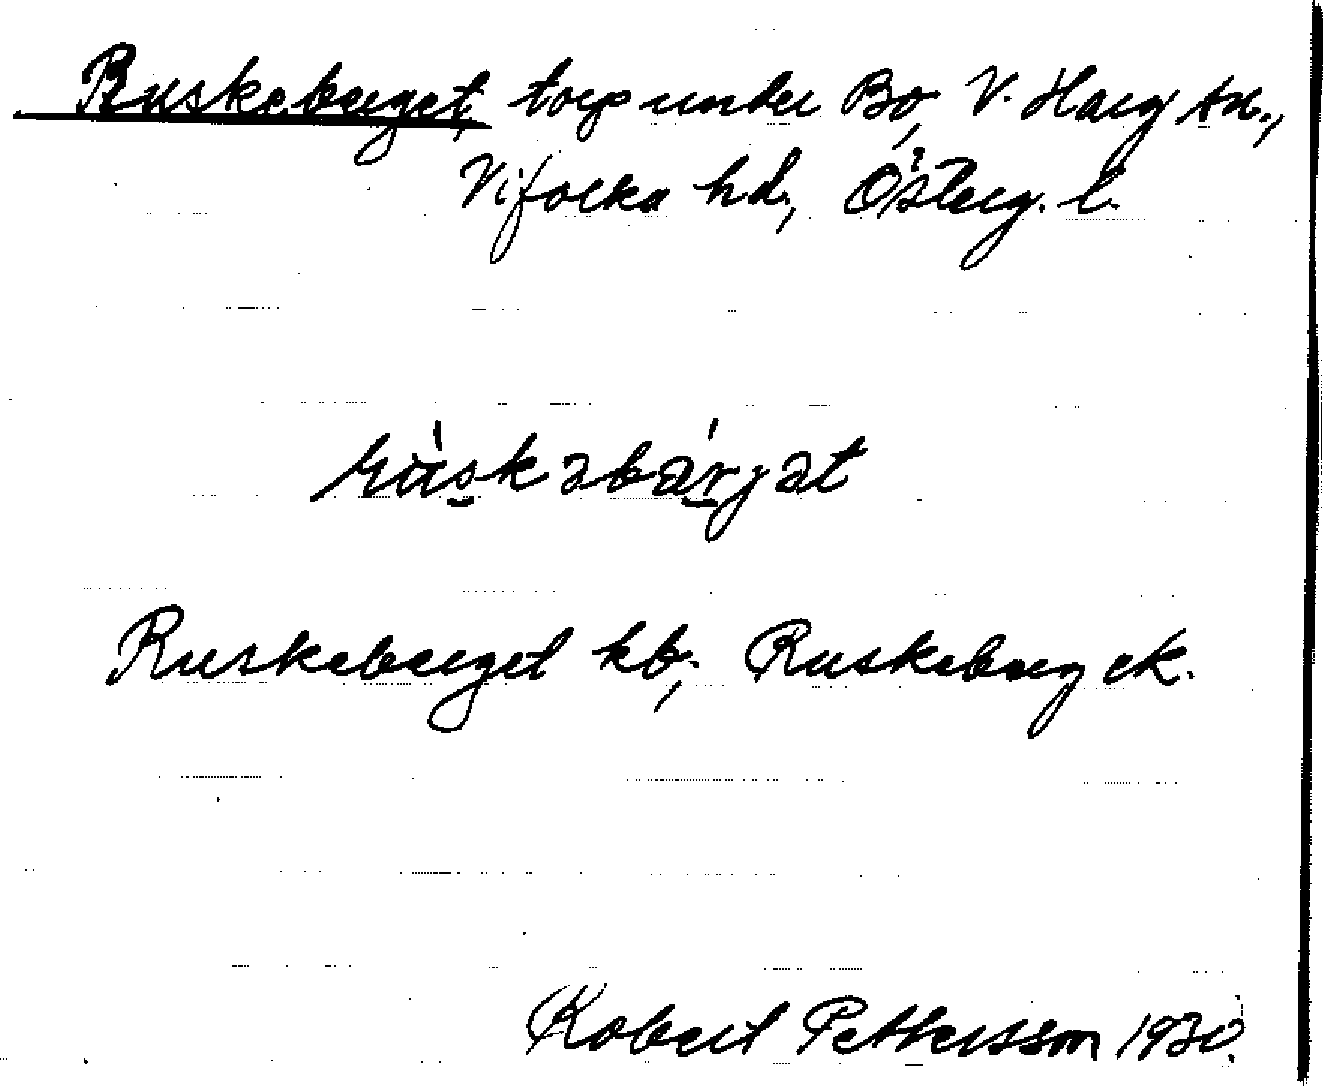 Ruskeberget, torp under Bo, V. Harg sn.,
Vifolka hd., Österg. l.
rùskəbárjət
Ruskeberget kb, Ruskeberg ek.
Robert Pettersson 1930.